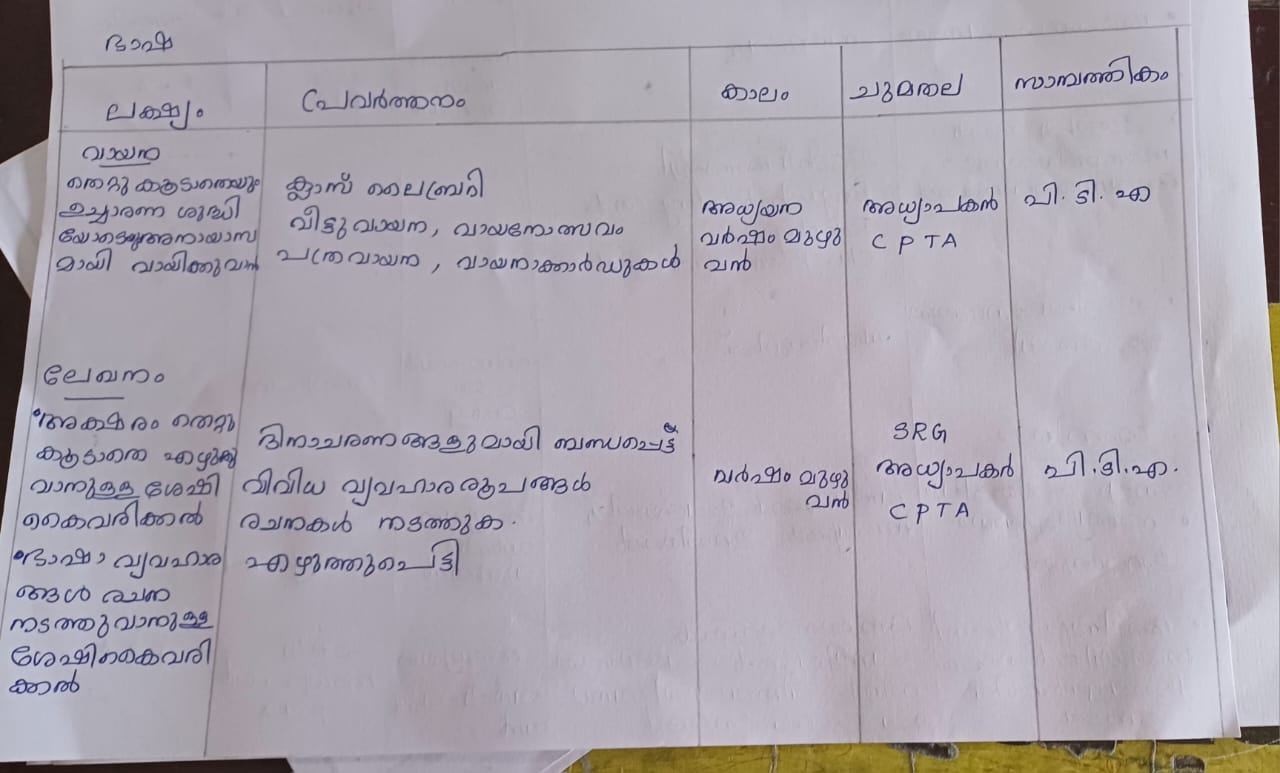 ഭാഷ
ലക്ഷ്യം
പ്രവർത്തനം
കാലം
ചുമതല
സാമ്പത്തികം
വായന
തെറ്റു കൂടാതെയും
ഉച്ചാരണ ശുദ്ധി
യോടെയും അനായാസ
മായി വായിക്കുവാൻ
ക്ലാസ് ലൈബ്രറി
വീട്ടുവായന, വായനോത്സവം
പത്രവായന, വായനാക്കാർഡുകൾ
അധ്യയന
വർഷം മുഴു
വൻ
അധ്യാപകൻ
CPTA
പി. ടി. എ
ലേഖനം
അക്ഷരം തെറ്റു
കൂടാതെ എഴുതു
വാനുള്ള ശേഷി
കൈവരിക്കൽ
ഭാഷാ വ്യവഹാര
ങ്ങൾ രചന
നടത്തുവാനുള്ള
ശേഷികൈവരി
ക്കൽ
ദിനാചരണങ്ങളുമായി ബന്ധപ്പെട്ട്
വിവിധ വ്യവഹാരരൂപങ്ങൾ
രചനകൾ നടത്തുക.
എഴുത്തുപെട്ടി
വർഷം മുഴു
വൻ
SRG
അധ്യാപകൻ
CPTA
പി.ടി.എ.